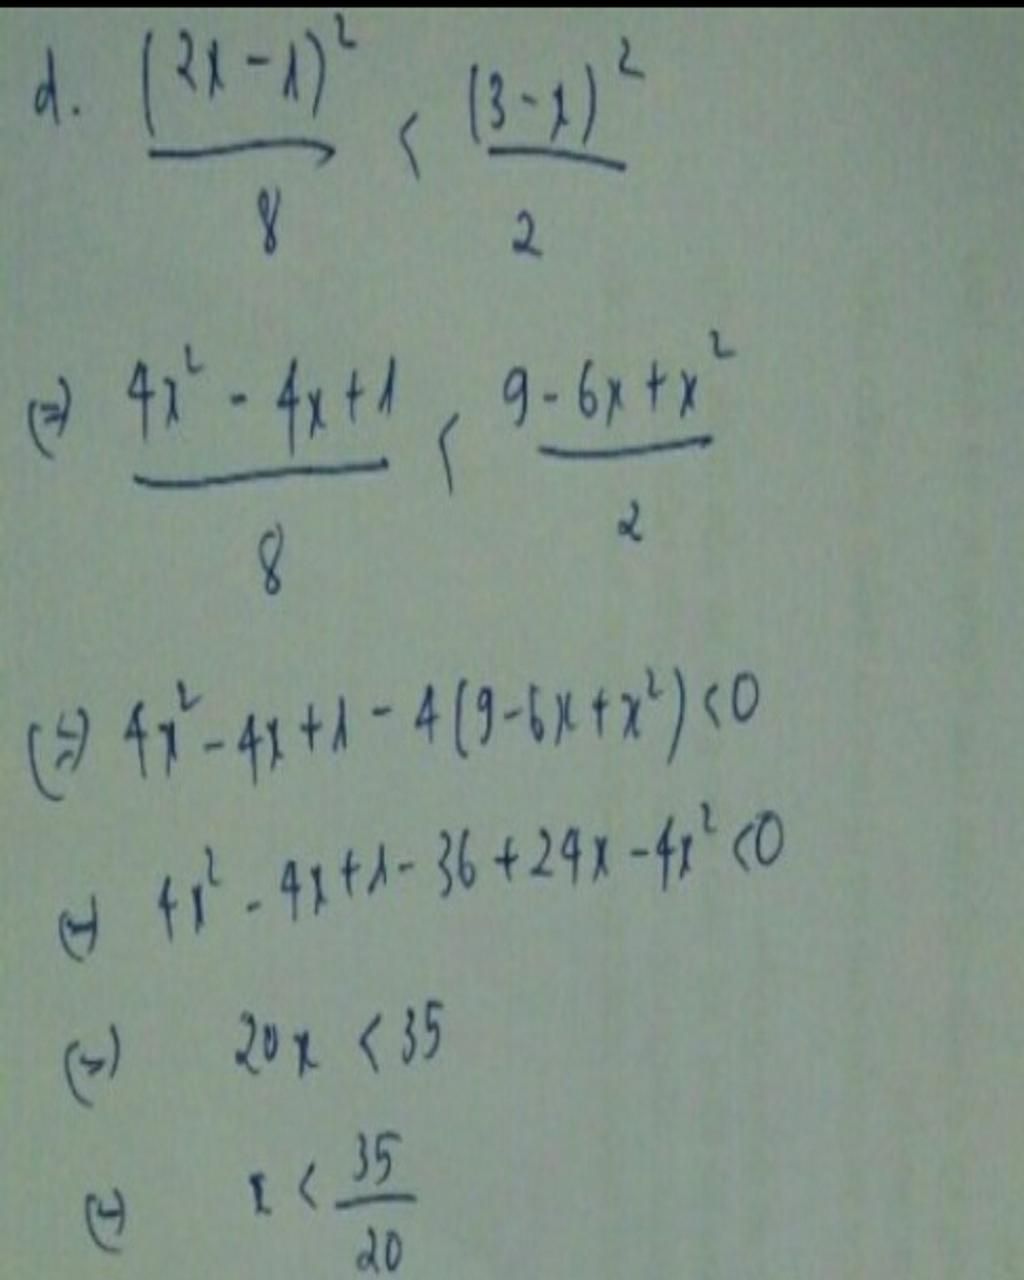 d. (2x - 1)² / 8 < (3 - x)² / 2
(=) 4x² - 4x + 1 / 8 < 9 - 6x + x² / 2
(=) 4x² - 4x + 1 - 4(9 - 6x + x²) < 0
(=) 4x² - 4x + 1 - 36 + 24x - 4x² < 0
(=) 20x < 35
(=) x < 35 / 20